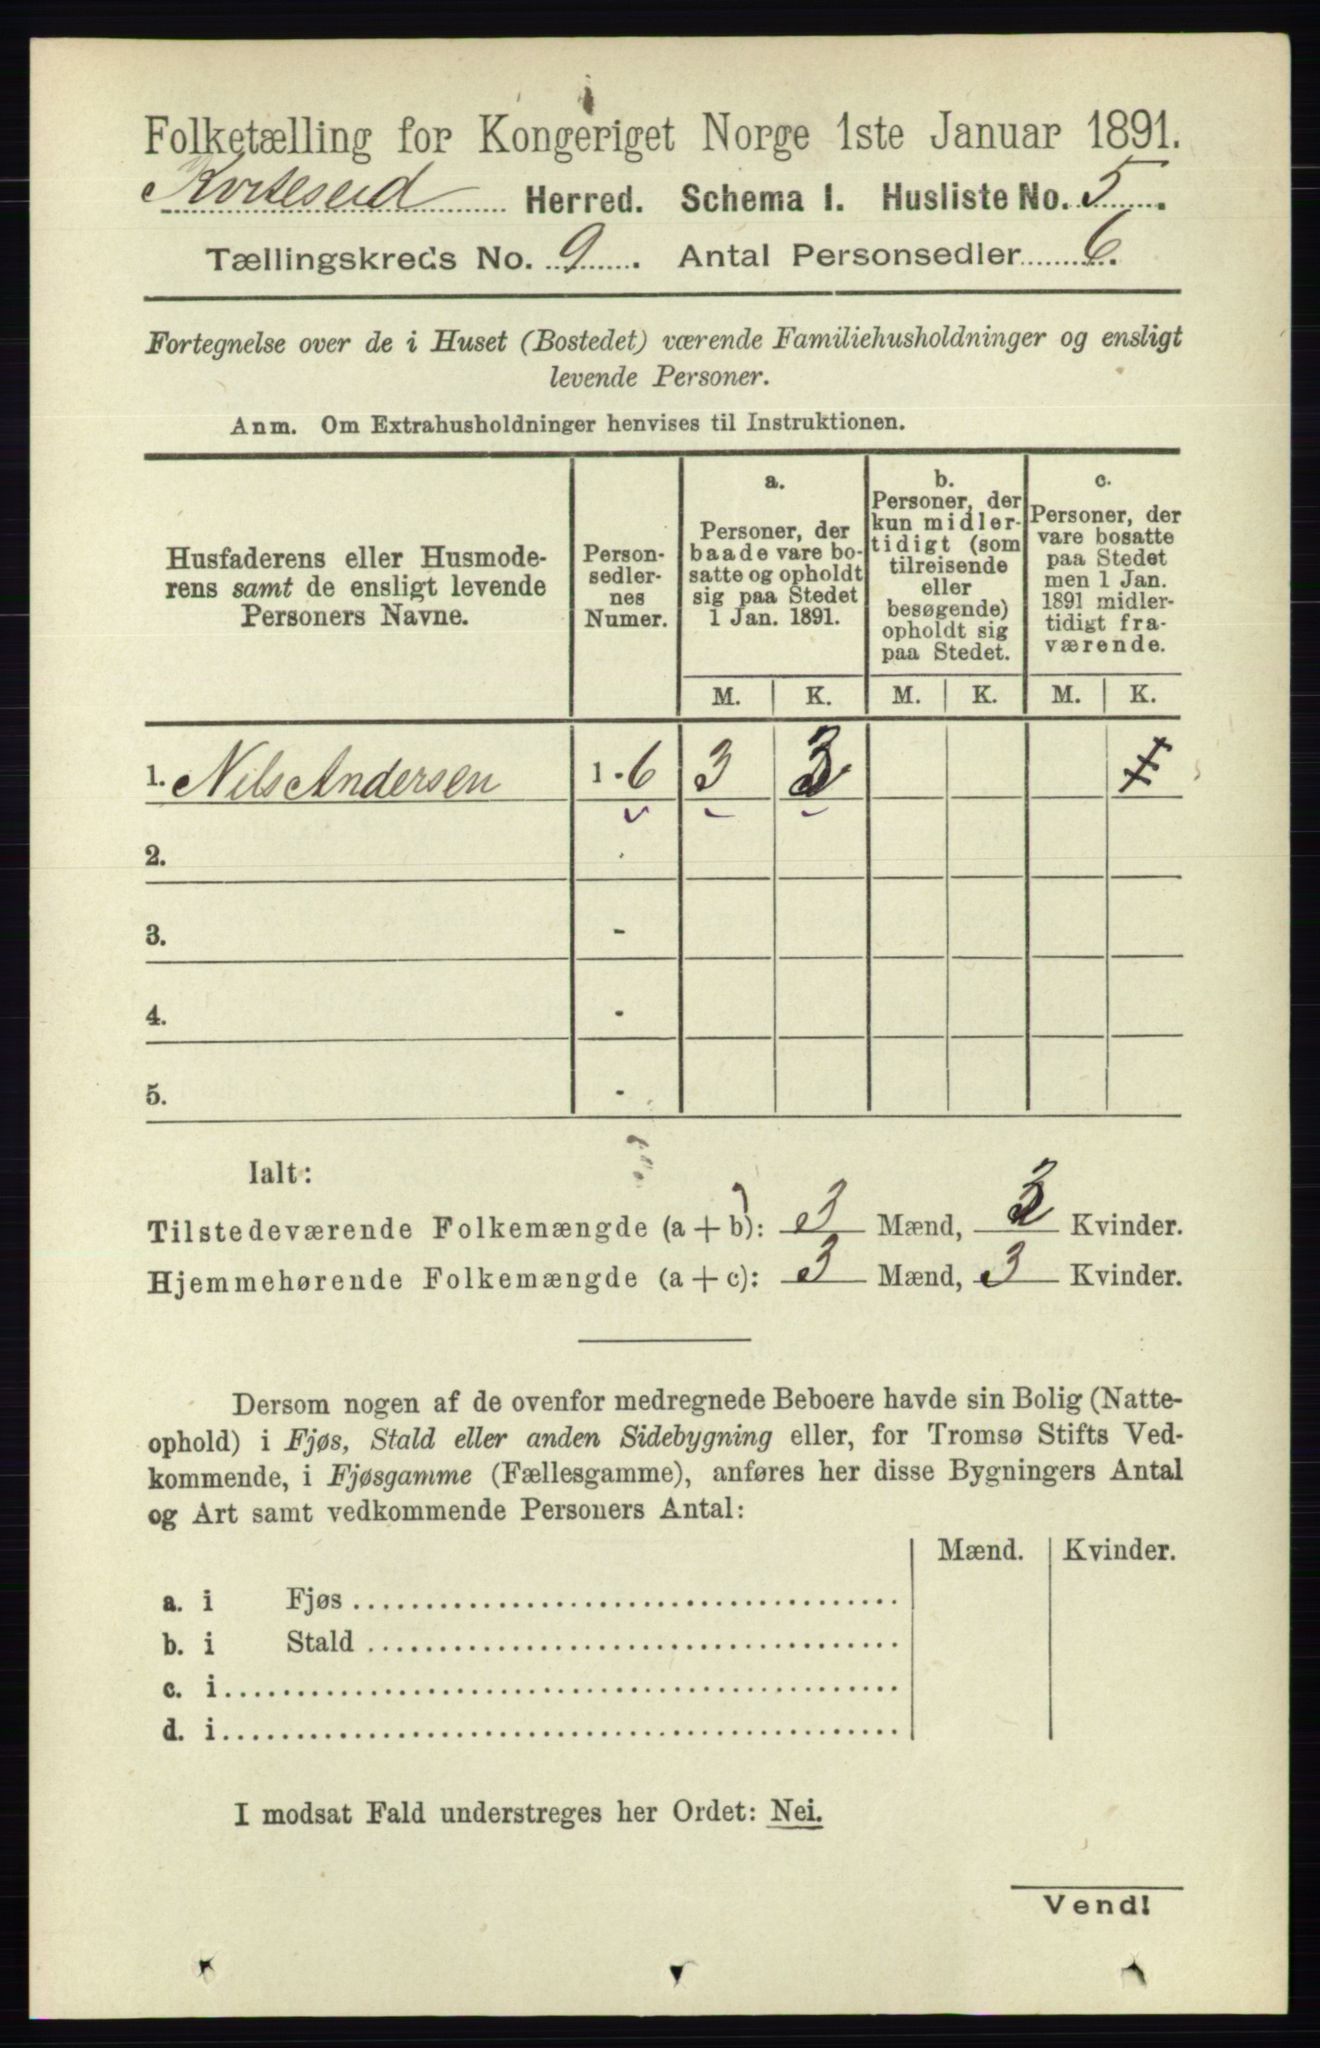 Folketælling for Kongeriget Norge 1ste Januar 1891.
Kviteseid Herred. Schema I. Husliste No. 5.
Tællingskreds No. 9. Antal Personsedler 6.
Fortegnelse over de i Huset (Bostedet) værende Familiehusholdninger og ensligt
levende Personer.
Anm. Om Extrahusholdninger henvises til Instruktionen.
Husfaderens eller Husmode-
rens samt de ensligt levende
Personers Navne.
Person-
sedler-
nes
Numer.
a.
Personer, der
baade vare bo-
satte og opholdt
sig paa Stedet
1 Jan. 1891.
b.
Personer, der
kun midler-
tidigt (som
tilreisende
eller
besøgende)
opholdt sig
paa Stedet.
c.
Personer, der
vare bosatte
paa Stedet
men 1 Jan.
1891 midler-
tidigt fra-
værende.
M. K. M. K. M. K.
1. Nils Andersen 1-6 3 3
2.
3. -
4. -
5. -
Ialt:
Tilstedeværende Folkemængde (a + b): 3 Mænd, 3 Kvinder.
Hjemmehørende Folkemængde (a + c): 3 Mænd, 3 Kvinder.
Dersom nogen af de ovenfor medregnede Beboere havde sin Bolig (Natte-
ophold) i Fjøs, Stald eller anden Sidebygning eller, for Tromsø Stifts Ved-
kommende, i Fjøsgamme (Fællesgamme), anføres her disse Bygningers Antal
og Art samt vedkommende Personers Antal:
Mænd. Kvinder.
a. i Fjøs
b. i Stald
c. i
d. i
I modsat Fald understreges her Ordet: Nei.
Vend!